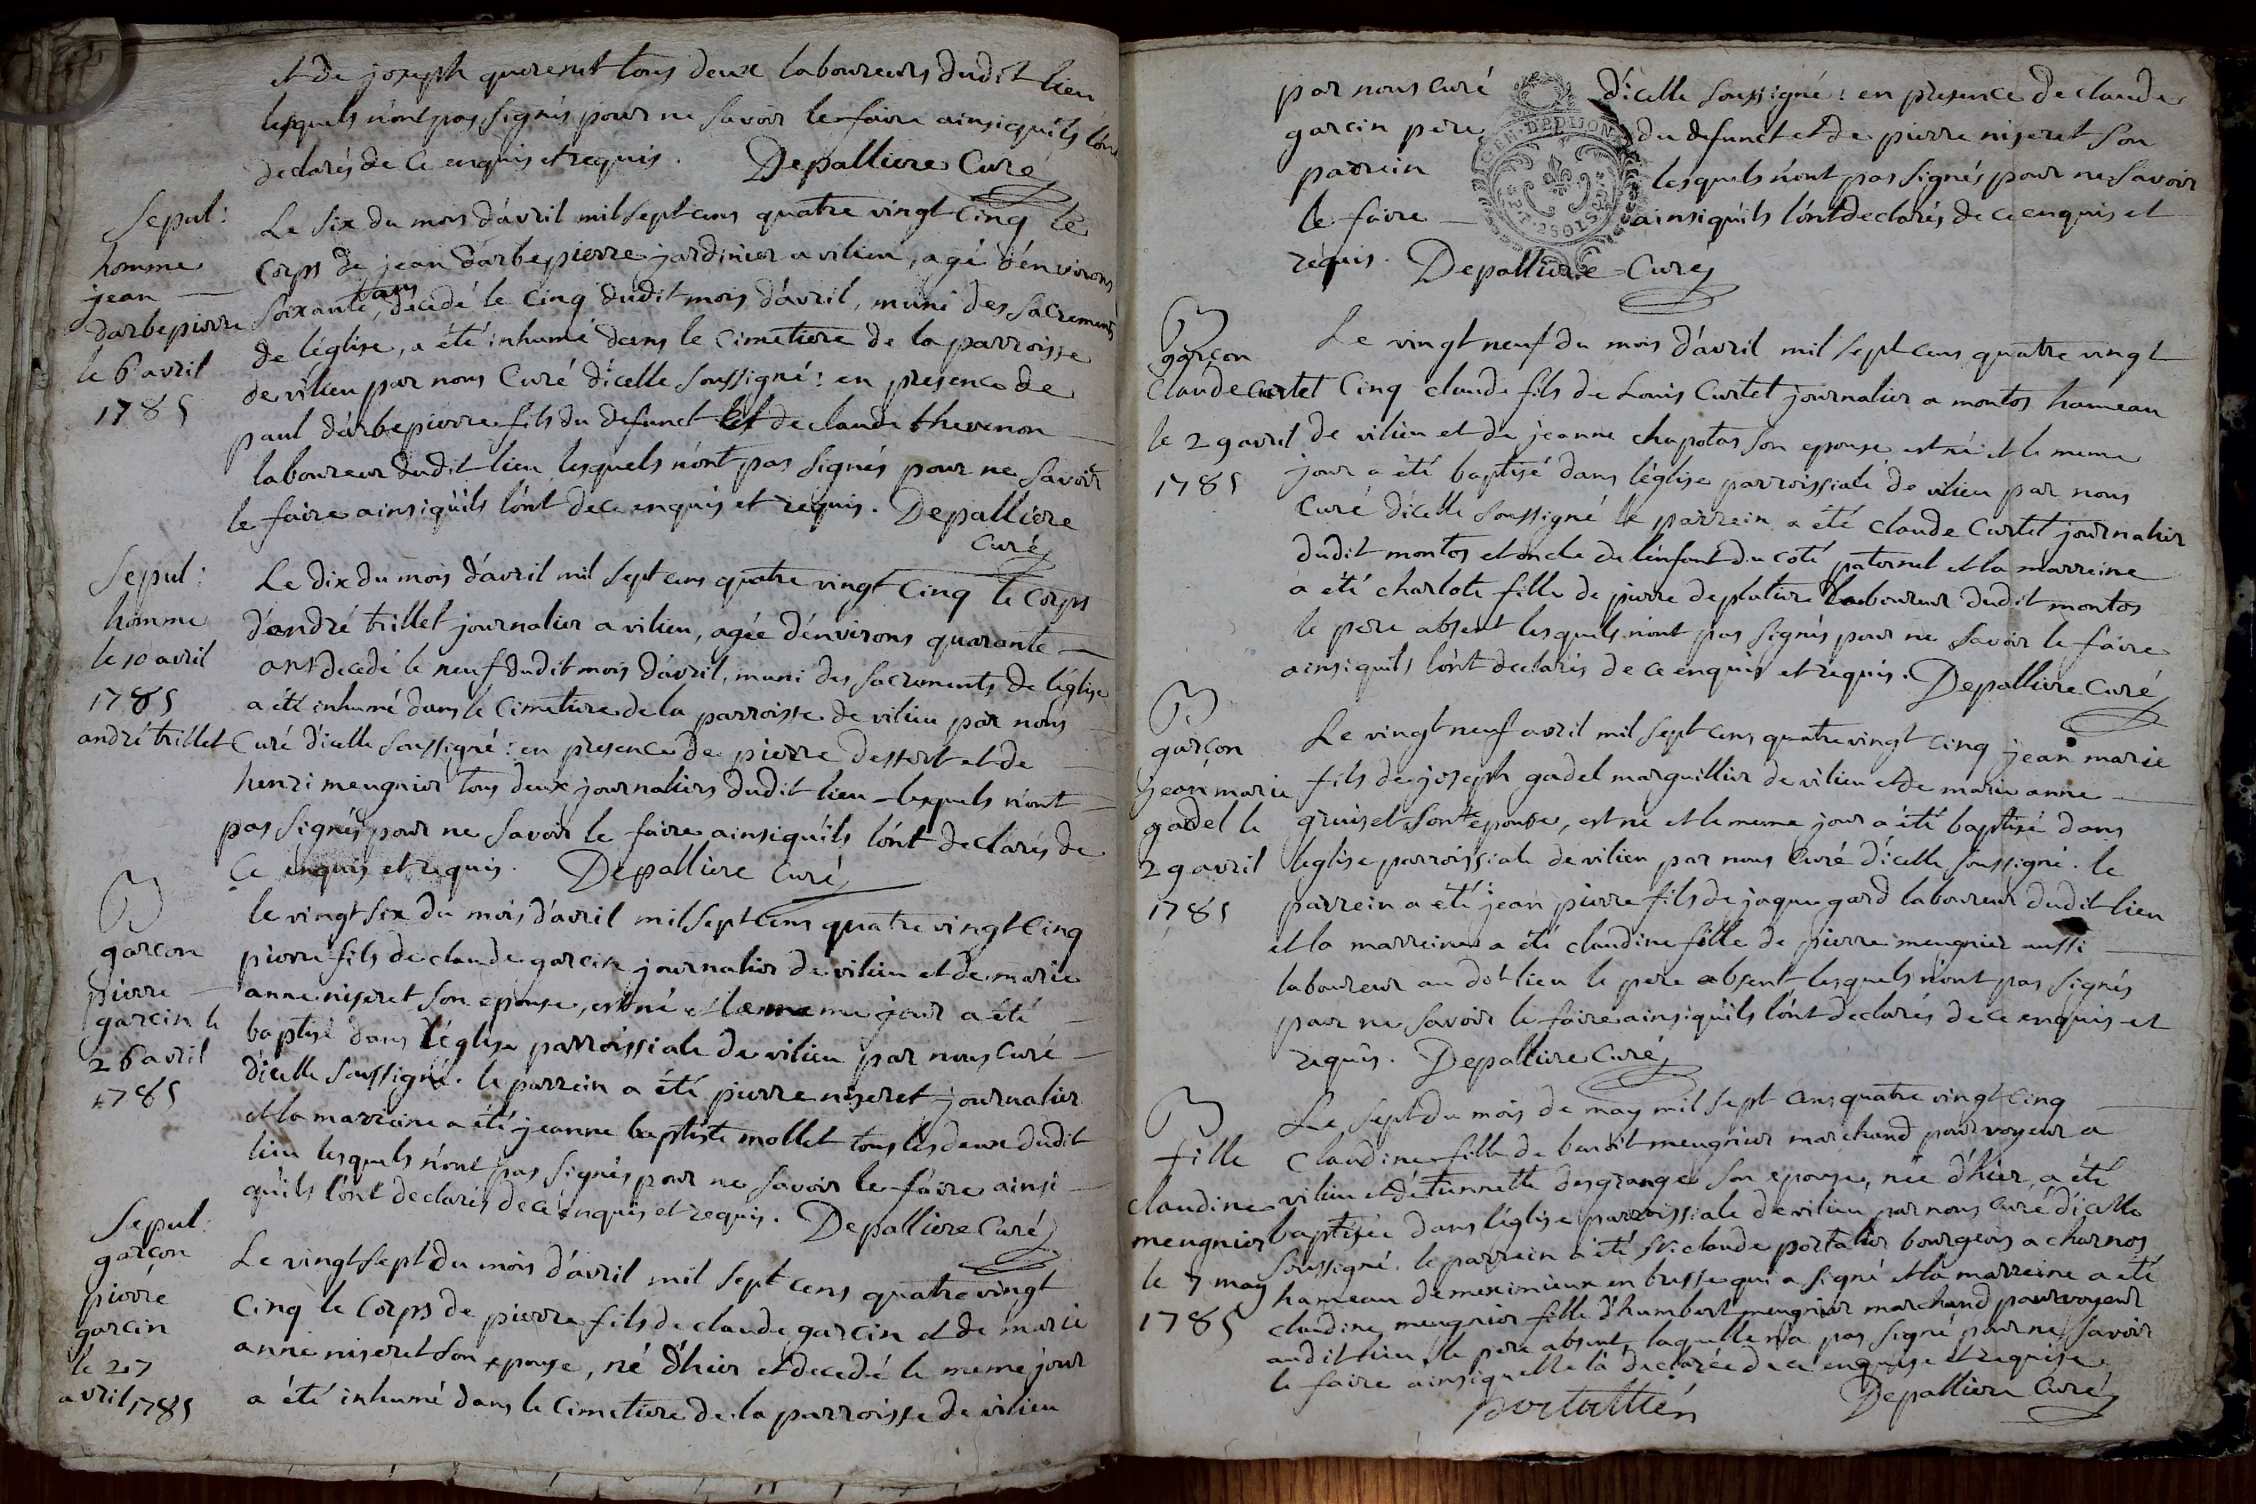 et de joseph querenet tous deux laboureurs dudit lieu
lesquels n'ont pas signés pour ne savoir le faire ainsi qu'ils l'ont
declarés de ce enquis et requis. Depalliere Curé
Sepul:
homme
jean
darbepierre
le 6 avril
1785
Le six du mois d'avril mil sept cens quatre vingt Cinq le
Corps de jean darbepierre jardinier a vilieu, agé d'environs
soixante ans, décedé le cinq dudit mois d'avril, muni des sacrements
de l'église, a été inhumé dans le cimetiere de la parroisse
de vilieu par nous Curé d'icelle soussigné: en presence de
paul d'arbepierre fils du defunct et de claude thevenon
laboureur dudit lieu lesquels n'ont pas signés pour ne savoir
le faire ainsi qu'ils l'ont de ce enquis et requis. Depalliere
Curé
Sepul:
homme
le 10 avril
1785
andré trillet
Le dix du mois d'avril mil sept cens quatre vingt Cinq le Corps
d'andré trillet journalier a vilieu, agée d'environs quarante
ans decedé le neuf dudit mois d'avril, muni des sacrements de l'église
a été inhumé dans le Cimetiere de la parroisse de vilieu par nous
Curé d'icelle soussigné: en presence de pierre dessert et de
henri meugnier tous deux journaliers dudit lieu lesquels n'ont
pas signés pour ne savoir le faire ainsi qu'ils l'ont declarés de
Ce enquis et requis. Depalliere Curé
B
garcon
pierre
garcin le
26 avril
1785
le vingt six du mois d'avril mil sept cens quatre vingt Cinq
pierre fils de claude garcin journalier de vilieu et de marie
anne niseret son epouse, est né et le meme jour a été
baptisé dans l'église parroissiale de vilieu par nous curé
d'icelle soussigné. le parrein a été pierre niseret journalier
et la marreine a été jeanne baptiste mollet tous les deux dudit
lieu lesquels n'ont pas signés pour ne savoir le faire ainsi
qu'ils l'ont declarés de ce enquis et requis. Depalliere Curé
Sepul:
garçon
pierre
garcin
le 27
avril 1785
Le vingt sept du mois d'avril mil sept cens quatre vingt
Cinq le Corps de pierre fils de claude garcin et de marie
anne niseret son epouse, né d'hier et decedé le meme jour
a été inhumé dans le Cimetiere de la parroisse de vilieu
par nous curé d'icelle soussigné: en presence de claude
garcin pere du defunct et de pierre niseret son
parrein lesquels n'ont pas signés pour ne savoir
le faire ainsi qu'ils l'ont declarés de ce enquis et
requis. Depalliere Curé
B
garçon
claude curtet
le 29 avril
1785
Le vingt neuf du mois d'avril mil sept cens quatre vingt
Cinq claude fils de Louis Curtet journalier a montos hameau
de vilieu et de jeanne chapotas son epouse est né et le meme
jour a été baptisé dans l'église parroissiale de vilieu par nous
Curé d'icelle soussigné le parrein a été claude Curtet journalier
dudit montos et oncle de l'enfant du coté paternel et la marreine
a été charlote fille de pierre deplatiere laboureur dudit montos
le pere absent lesquels n'ont pas signés pour ne savoir le faire
ainsi qu'ils l'ont declarés de ce enquis et requis. Depalliere Curé
B
garçon
jean marie
gadel le
29 avril
1785
Le vingt neuf avril mil sept cens quatre vingt Cinq jean marie
fils de joseph gadel marguillier de vilieu et de marie anne
gruiset son epouse, est né et le meme jour a été baptisé dans
l'eglise parroissiale de vilieu par nous Curé d'icelle soussigné. le
parrein a été jean pierre fils de jaque gard laboureur dudit lieu
et la marreine a été claudine fille de pierre meugnier aussi
laboureur au dit lieu le pere absent lesquels n'ont pas signés
pour ne savoir le faire ainsi qu'ils l'ont declarés de ce enquis et
requis. Depalliere Curé
B
fille
claudine
meugnier
le 7 may
1785
Le sept du mois de may mil sept cens quatre vingt Cinq
Claudine fille de benoit meugnier marchand pourvoyeur a
vilieu et d'etiennette desgranges son epouse, née d'hier, a été
baptisée dans l'église parroissiale de vilieu par nous curé d'icelle
soussigné. le parrein a été Sr. claude portalier bourgeois a charnos
hameau de meximieux en bresse qui a signé et la marreine a été
claudine meugnier fille d'humbert meugnier marchand pourvoyeur
audit lieu, le pere absent, laquelle n'a pas signé pour ne savoir
le faire ainsi quelle la declarée de ce enquise et requise.
portallier Depalliere Curé